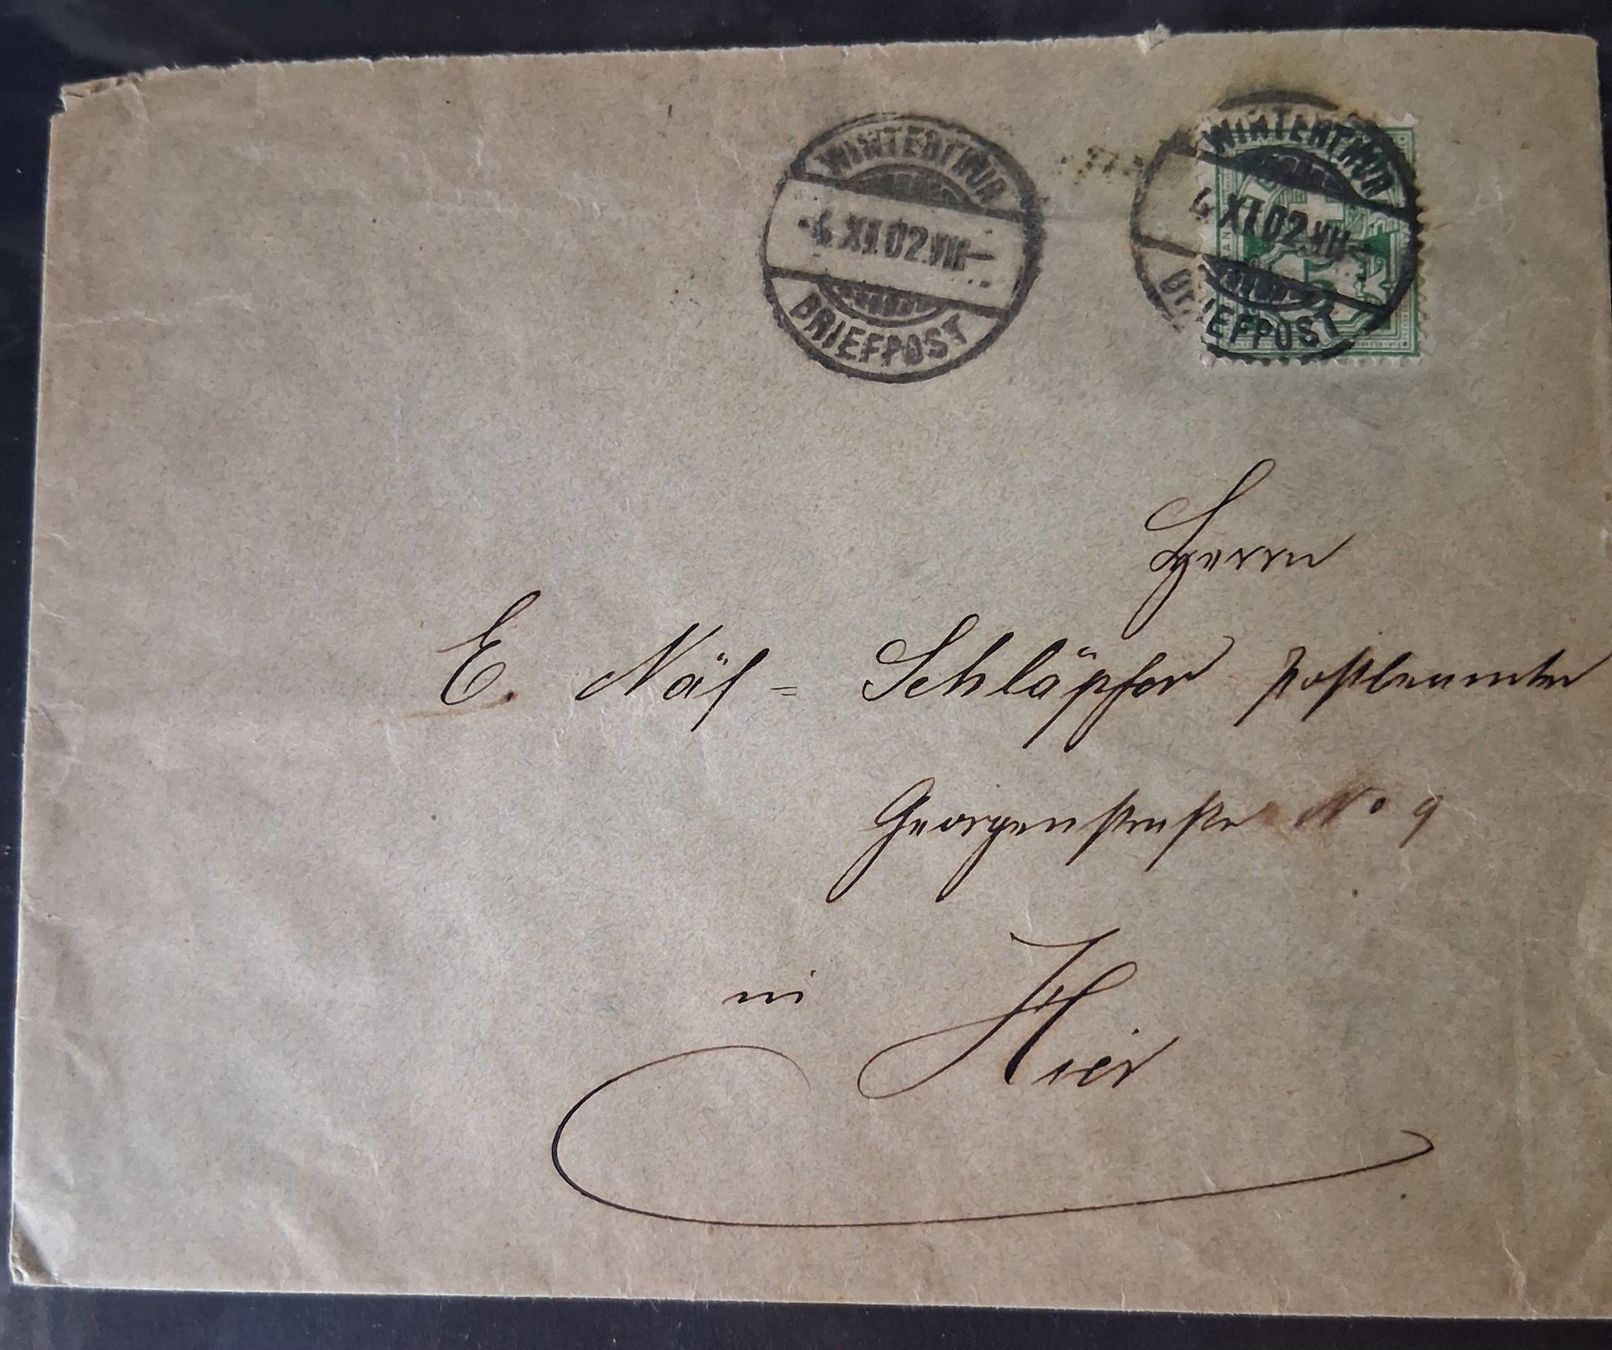 WINTERTHUR
-4.XI.02.VIII-
BRIEFPOST
WINTERTHUR
4.XI.02.VIII-
BRIEFPOST
Herrn
E. Näf = Schläpfer Postbeamter
Georgenstraße No 9
in Hier